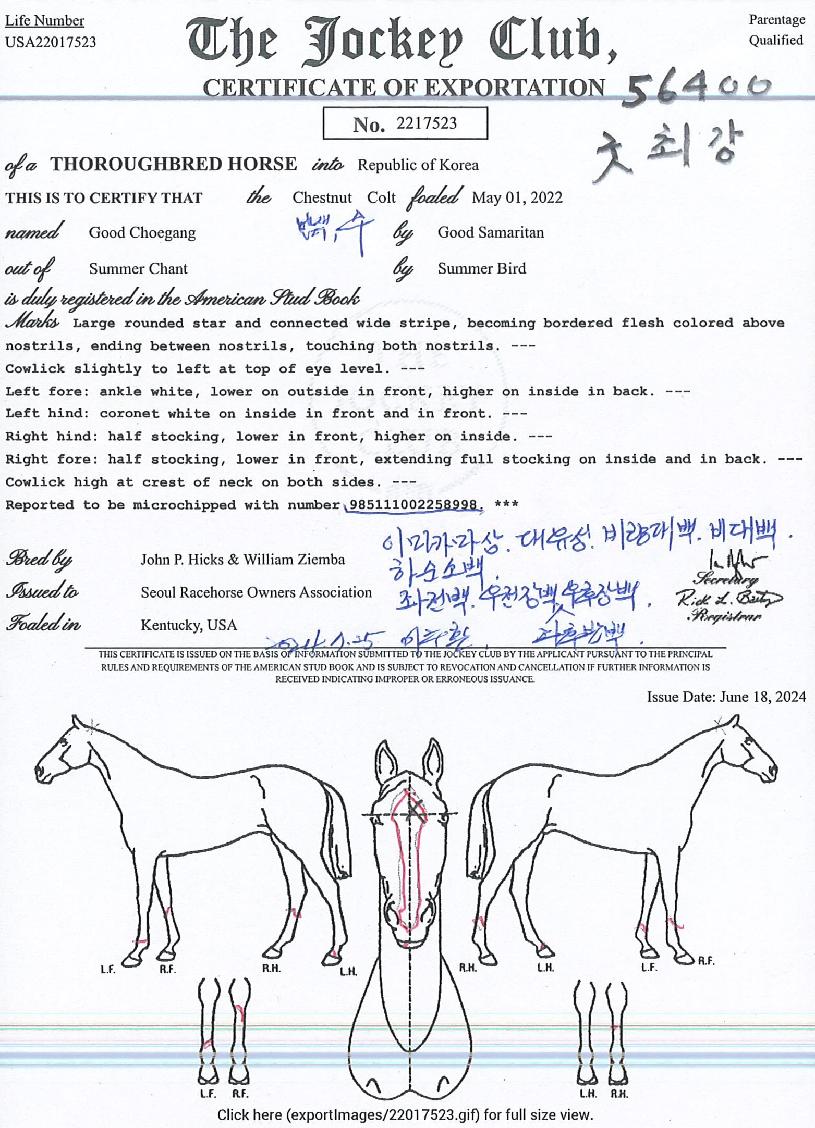 Life Number
USA22017523
The Jockey Club,
Parentage
Qualified
CERTIFICATE OF EXPORTATION
56400
굿 최강
No. 2217523
of a THOROUGHBRED HORSE into Republic of Korea
THIS IS TO CERTIFY THAT the Chestnut Colt foaled May 01, 2022
named Good Choegang by Good Samaritan
out of Summer Chant by Summer Bird
is duly registered in the American Stud Book
Marks Large rounded star and connected wide stripe, becoming bordered flesh colored above
nostrils, ending between nostrils, touching both nostrils. ---
Cowlick slightly to left at top of eye level. ---
Left fore: ankle white, lower on outside in front, higher on inside in back. ---
Left hind: coronet white on inside in front and in front. ---
Right hind: half stocking, lower in front, higher on inside. ---
Right fore: half stocking, lower in front, extending full stocking on inside and in back. ---
Cowlick high at crest of neck on both sides. ---
Reported to be microchipped with number 985111002258998. ***
이마가마상. 대유성. 비량대백. 비대백.
하순소백.
좌전백. 우전장백. 우후장백.
Bred by John P. Hicks & William Ziemba
Issued to Seoul Racehorse Owners Association
Foaled in Kentucky, USA
Secretary
Registrar
THIS CERTIFICATE IS ISSUED ON THE BASIS OF INFORMATION SUBMITTED TO THE JOCKEY CLUB BY THE APPLICANT PURSUANT TO THE PRINCIPAL
RULES AND REQUIREMENTS OF THE AMERICAN STUD BOOK AND IS SUBJECT TO REVOCATION AND CANCELLATION IF FURTHER INFORMATION IS
RECEIVED INDICATING IMPROPER OR ERRONEOUS ISSUANCE.
Issue Date: June 18, 2024
L.F. R.F. R.H. L.H. R.H. L.H. L.F. R.F.
L.F. R.F. L.H. R.H.
Click here (exportImages/22017523.gif) for full size view.